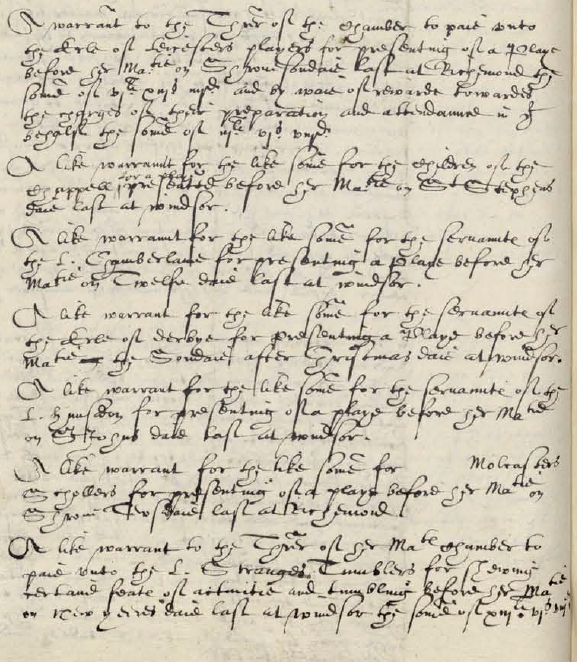 A warrant to the Threr of the chamber to paie unto
the Erle of Leicesters players for presenting of a Playe
before her Matie on Shrouesondaie last at Richemond the
some of vjli xiijs iiijd and by waie of rewarde towardes
the charges of their preparation and attendaunce in yt
behalf the some of iijli vjs viijd.
A like warrant for the like some for the children of the
Chappell for a play presented before her Matie on St Stephens
daie last at windsor.
A like warrannt for the like some for the servantes of
the L. Chamberlane for presenting a Playe before her
Matie on Twelfe daie last at windsor.
A like warrant for the like some for the servantes of
the Erle of derbye for presenting a Playe before her
Matie the Sondaie after Christmas daie at windsor.
A like warrant for the like some for the servantes of the
L. Hunsdon for presenting of a playe before her Matie
on St Johns daie last at windsor.
A like warrant for the like some for Molcasters
Schollers for presenting of a playe before her Matie on
Shroue Tewsdaie last at Richemond
A like warrant to the Threr of her Mates chamber to
paie unto the L. Stranges Tumblers for shewing
certaine feates of activitie and tumbling before her Matie
on New yeres daie last at windsor the some of xiijli vjs viijd